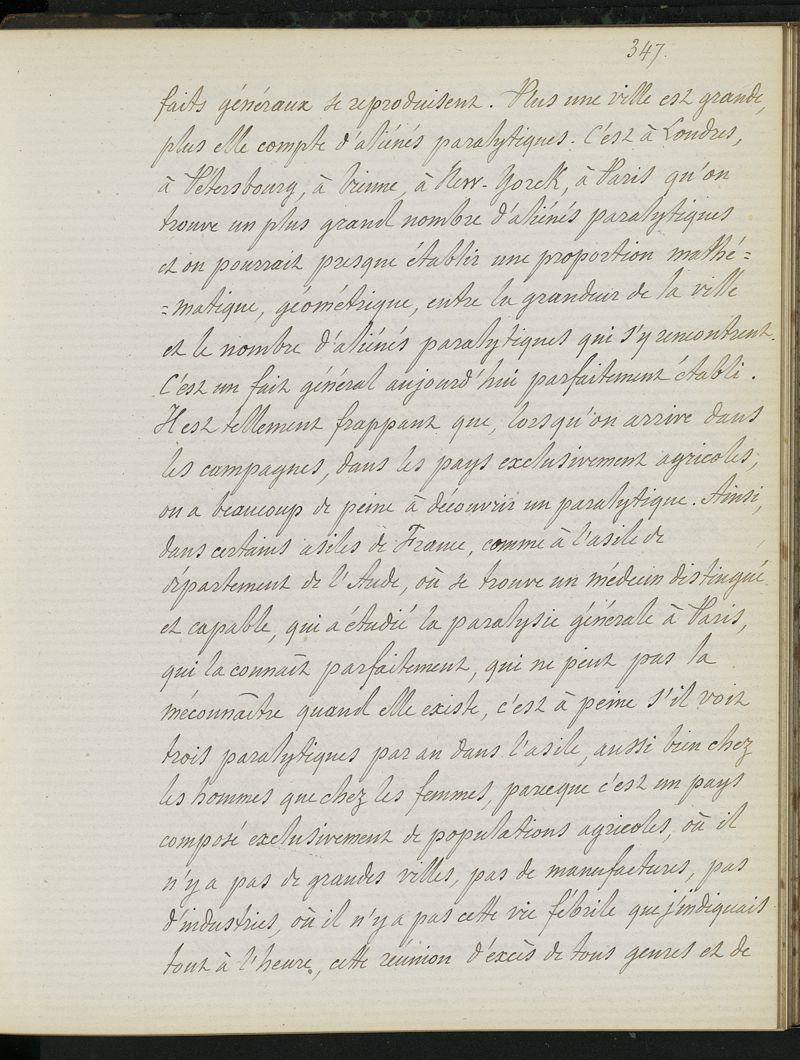 347.
faits généraux se reproduisent. Plus une ville est grande,
plus elle compte d'aliénés paralytiques. C'est à Londres,
à Pétersbourg, à Vienne, à New-Yorck, à Paris qu'on
trouve un plus grand nombre d'aliénés paralytiques
et on pourrait presque établir une proportion mathé=
=matique, géométrique, entre la grandeur de la ville
et le nombre d'aliénés paralytiques qui s'y rencontrent.
C'est un fait général aujourd'hui parfaitement établi.
Il est tellement frappant que, lorsqu'on arrive dans
les campagnes, dans les pays exclusivement agricoles,
on a beaucoup de peine à découvrir un paralytique. Ainsi,
dans certains asiles de France, comme à l'asile de
département de l'Aude, où se trouve un médecin distingué
et capable, qui a étudié la paralysie générale à Paris,
qui la connaît parfaitement, qui ne peut pas la
méconnaître quand elle existe, c'est à peine s'il voit
trois paralytiques par an dans l'asile, aussi bien chez
les hommes que chez les femmes, parceque c'est un pays
composé exclusivement de populations agricoles, où il
n'y a pas de grandes villes, pas de manufactures, pas
d'industries, où il n'y a pas cette vie fébrile que j'indiquais
tout à l'heure, cette réunion d'excès de tous genres et de